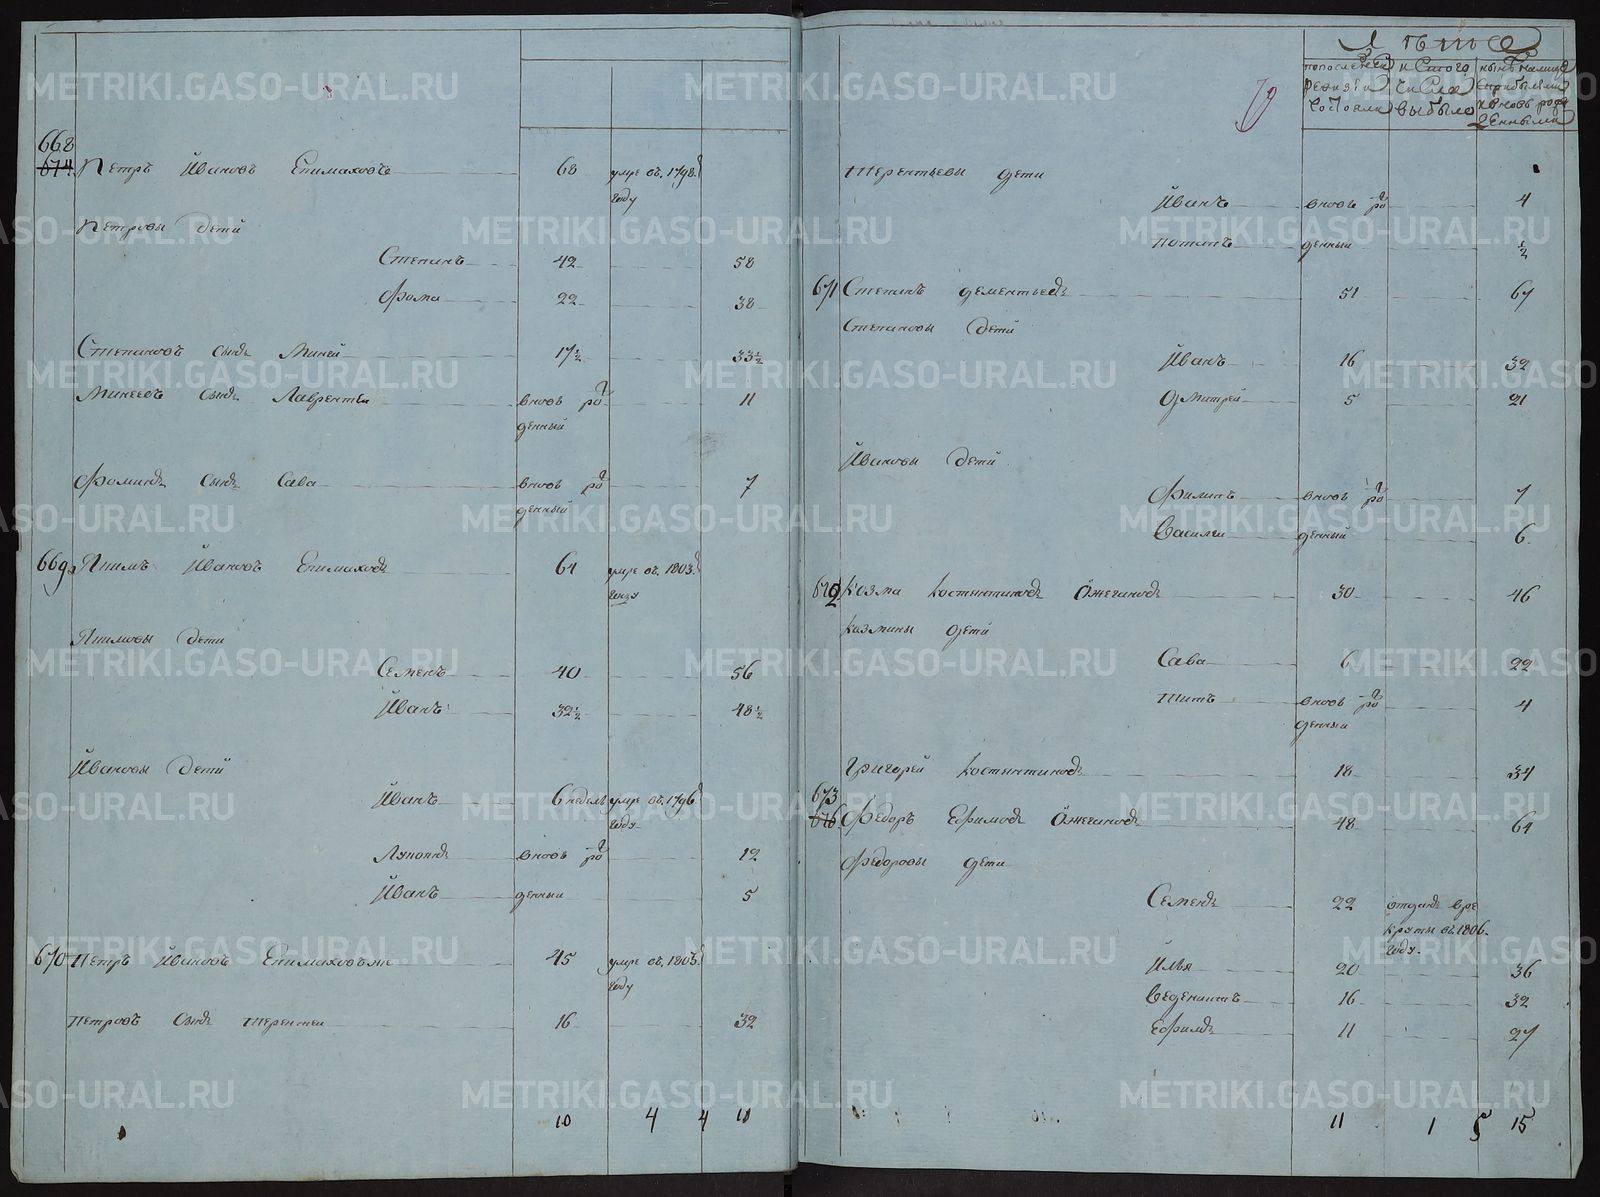 METRIKI.GASO-URAL.RU
668
674. Петръ Ивановъ Епимаховъ 68 умре въ 1798.
году
Петровы дети
Степанъ 42 58
Фома 22 38
Степановъ сынъ Миней 17½ 33½
Минеевъ сынъ Лаврентеи вновь ро 11
денный
Фоминъ сынъ Сава вновь ро 7
денный
669 Пимъ Ивановъ Епимаховъ 64 умре въ 1803.
году
Пимовы дети
Семенъ 40 56
Иванъ 32½ 48½
Ивановы дети
Иванъ 6 недель умре въ 1796
году
вновь ро 12
Иванъ денныи 5
670 Петръ Ивановъ 45 умре въ
году
Петровъ сынъ Терентеи 16 32
10 4 4 11
Лета
по последней и с того ныне налице
ревизии числа с прибылыми
состояли выбыло и вновь рож
денными
Терентьевы дети
Иванъ вновь ро 4
Потапъ денныи ½
671 Степанъ Дементьевъ 51 67
Степановы дети
Иванъ 16 32
Дмитрей 5 21
Ивановы дети
Филипъ вновь ро 7
Василеи денный 6
672 Козма Костянтиновъ Ожегиновъ 30 46
Козмины дети
Сава 6 22
Титъ вновь ро 4
денныи
Григорей Костянтиновъ 18 34
673
676. Федоръ Ефимовъ Ожегиновъ 48 64
Федоровы дети
Семенъ 22 отданъ вре
круты въ 1806.
году.
Илья 20 36
Веденихтъ 16 32
Ефимъ 11 27
11 1 5 15